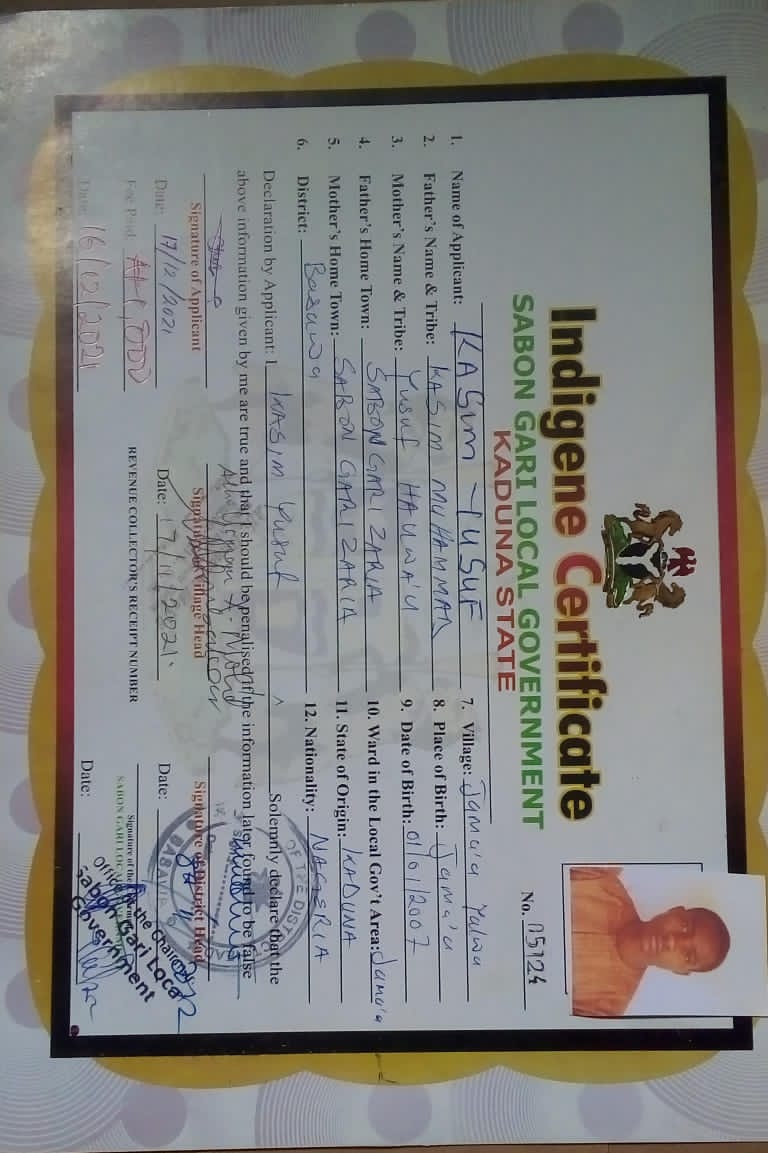 Indigene Certificate
SABON GARI LOCAL GOVERNMENT
KADUNA STATE
No. 05724
1. Name of Applicant: KASIM YUSUF
2. Father's Name & Tribe: KASIM MUHAMMAD
3. Mother's Name & Tribe: Yusuf HAUWA'U
4. Father's Home Town: SABON GARI ZARIA
5. Mother's Home Town: SABON GARI ZARIA
6. District: Basawa
7. Village: Jama'a Yalwa
8. Place of Birth: Jama'a
9. Date of Birth: 01/01/2007
10. Ward in the Local Gov't Area: Jama'a
11. State of Origin: KADUNA
12. Nationality: NAGERIA
Declaration by Applicant: I KASIM Yusuf Solemnly declare that the
above information given by me are true and that I should be penalised if the information later found to be false
Signature of Applicant
Date: 17/12/2021
Signature of Village Head
Date: 17/11/2021.
Signature of District Head
Date:
Fee Paid
Date: 16/12/2021
REVENUE COLLECTOR'S RECEIPT NUMBER
Signature of the
SABON GARI LOCAL
Date:
Office of the Chairman
Sabon Gari Local
Government